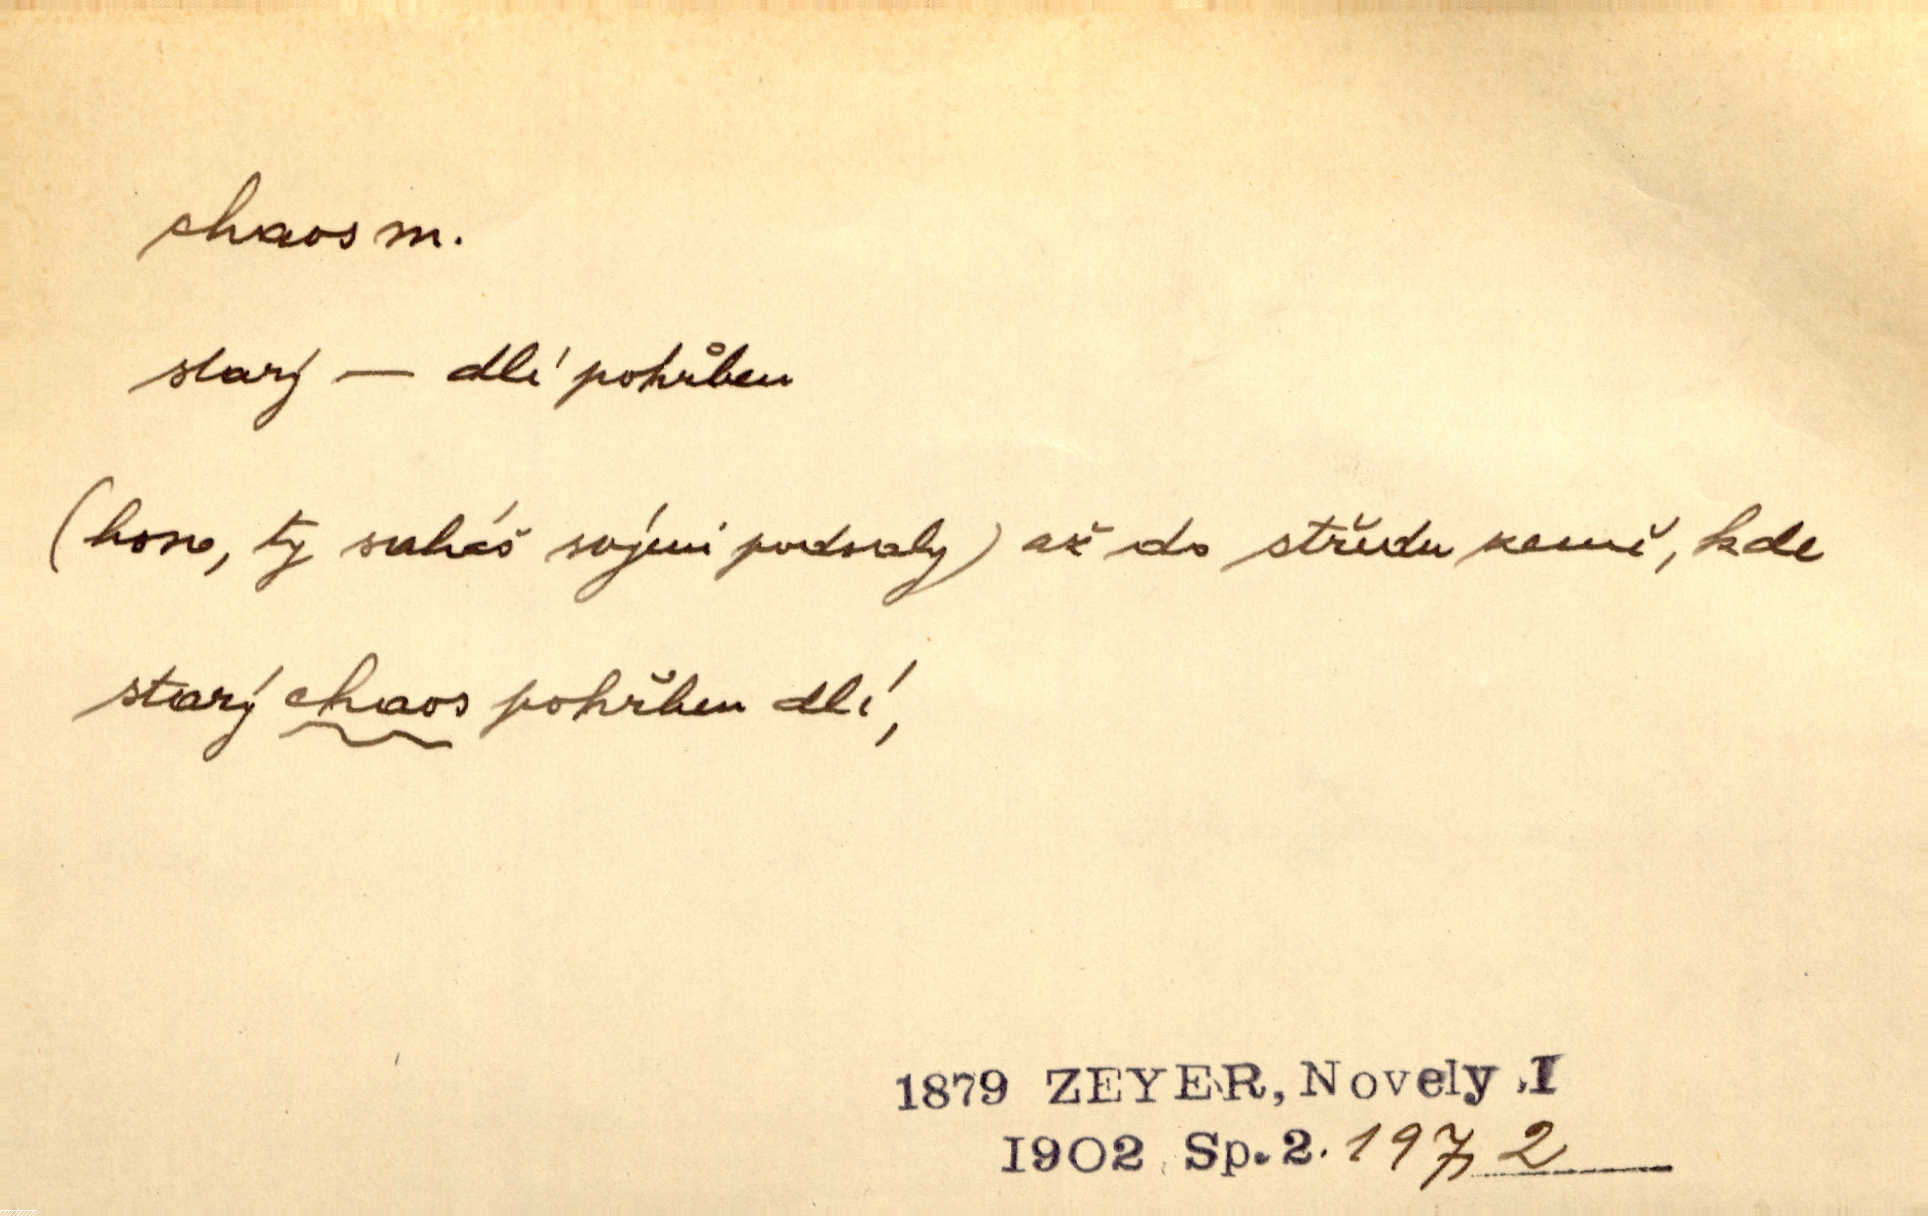 chaos m.
starý — dlí pohřben
(horo, ty saháš svými podvaly) až do středu země, kde
starý chaos pohřben dlí,
1879 ZEYER, Novely I
1902 Sp. 2. 197, 2